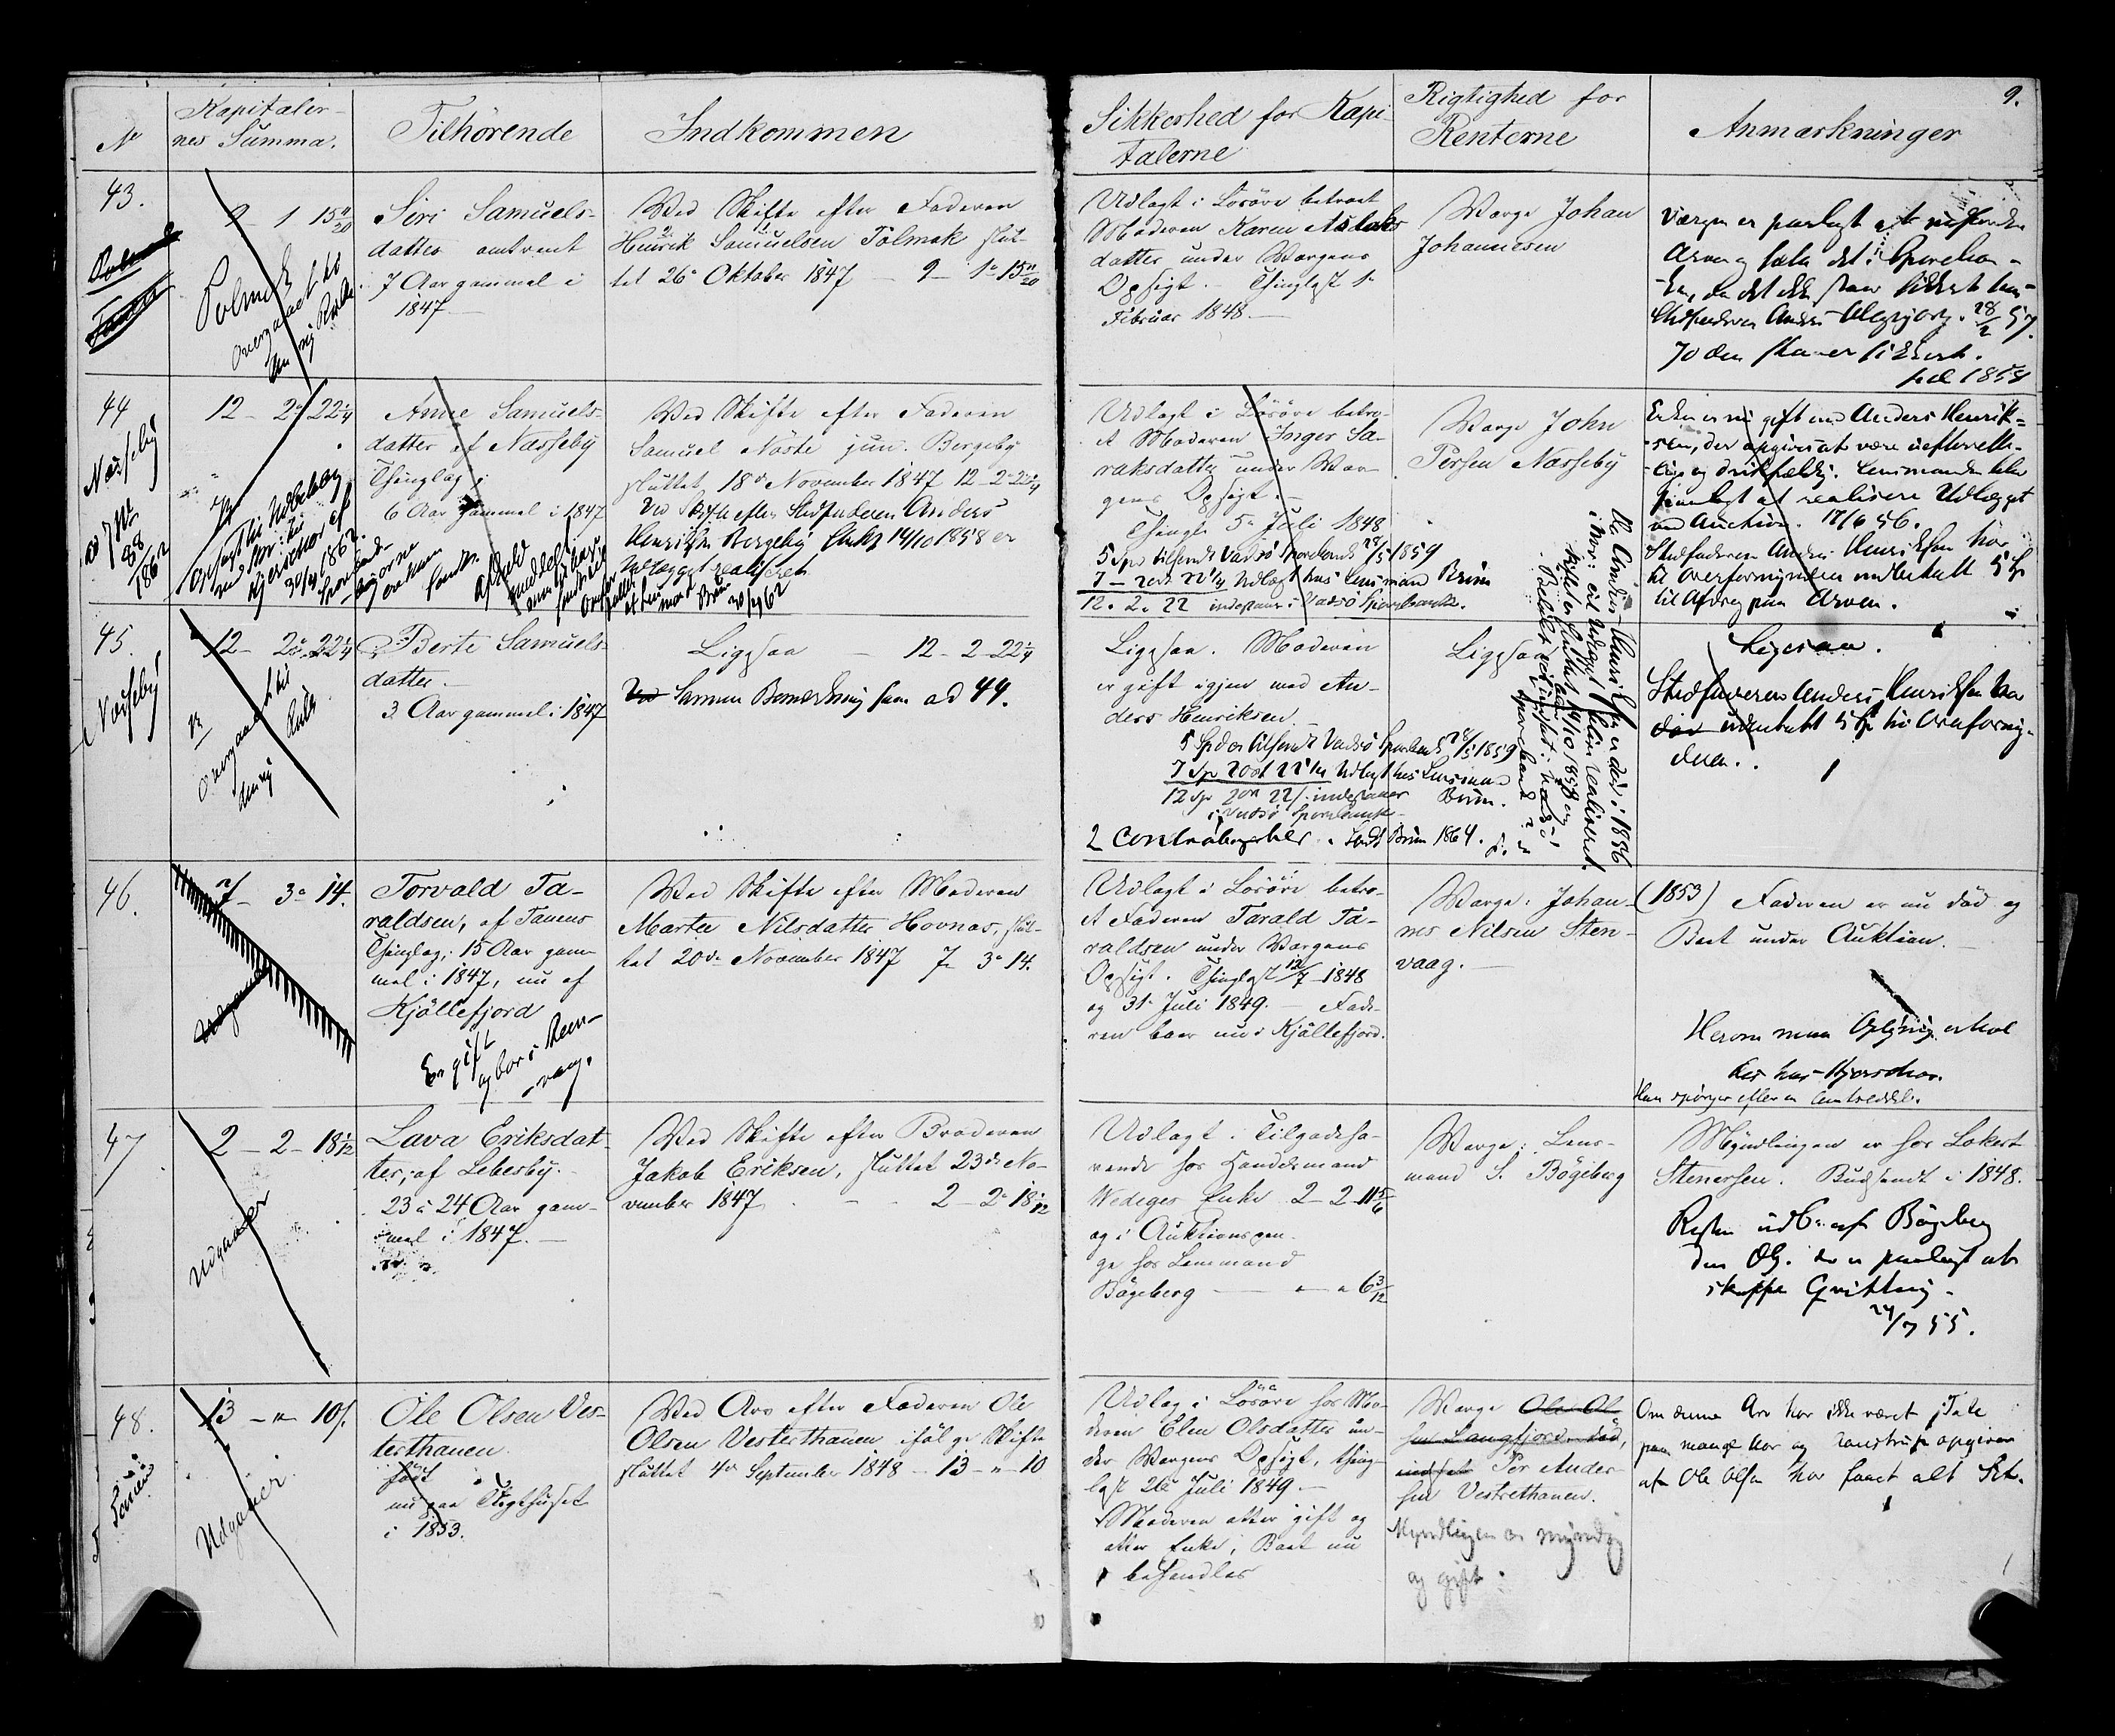 9.
N
Kapitaler-
nes Summa.
Tilhørende
Indkommen
Sikkerhed for Kapi-
talerne
Rigtighed for
Renterne
Anmærkninger
43.
9 - 1 15 11/20
Polmak
overgaaet til
den ny
Siri Samuels-
datter omtrent
7 Aar gammel i
1847.
Ved Skifte efter Faderen
Henrik Samuelsen Polmak slut-
tet 26de Oktober 1847 - 9 - 1 15 11/20
Udlagt i Lösöre betroet
Moderen Karen Aslaks
datter under Værgens
Opsigt. - Thinglyst 1
Februar 1848.
Værge Johan
Johannesen
Værgen er paalagt at
Arven og sætte det i Spareban-
ken, da det ikke staar sikkert hos
Stedfaderen Anders 28/2 57.
Jo den staaer sikkert.
1858
44
Næsseby
1862
12 - 2 - 22 1/4
Opsagt til Udbetaling
30/4 1862.
Anne Samuels-
datter af Næsseby
Thinglag i
6 Aar gammel i 1847
Ved Skifte efter Faderen
Samuel Näste jun. Bergeby
sluttet 18de November 1847 12-2-22 1/4
Ved Skifte efter Stedfaderen Anders
Henriksen Bergeby sluttet 14/10 1858 er
Udlægget realiseret
Brun
30/4 62
Udlagt i Lösöre betro-
et Moderen Inger Sa-
raksdatter under Vær-
gens Opsigt.
Thingl. 5te Juli 1848
5 Spd tilsendt Vadsö Sparebank 28/5 1859
7 - 2 ort 22 1/4 Udlagt hos Lensmand Brun
12. 2. 22 indestaaer i Vadsö Sparebank.
Værge John
Persen Næsseby
Enken er nu gift med Anders Henrik-
sen, der opgives at være uefterrette-
lig og drikfældig. Lensmanden blev
paalagt at realisere Udlægget
ved Auction. 17/6 56.
Stedfaderen Anders Henriksen har
til Overformynderen indbetalt 5 Sp
til Afdrag paa Arven.
45.
Næsseby
12 - 2 - 22 1/4
overgaaet til
den ny
Berte Samuels-
datter.
3 Aar gammel i 1847
Ligesaa - 12-2-22 1/4
Samme Bemærkning som ad 44.
Ligesaa. Moderen
er gift igjen med An-
ders Henriksen.
5 Spd er tilsendt Vadsö Sparebank 28/5 1859
7 Sp 2 ort 22 1/4 Udlagt hos Lensmand
12 Sp 2 ort 22 s indestaaer Brun.
i Vadsö Sparebank
2 Contrabøger . Sendt Brun 1864.
Ligesaa
Anders Henriksen er död i 1856
Skiftet sluttet 14/10 1858 og
Ligesaa.
Stedfaderen Anders Henriksen har
indbetalt 5 Sp til Overformyn-
deren.
46.
7 - 3 - 14.
Udgaaer
Torvald Ta-
raldsen, af Tanens
Thinglag, 15 Aar gam-
mel i 1847, nu af
Kjöllefjord
Er gift
og bor i
vaag.
Ved Skifte efter Moderen
Marthe Nilsdatter Hovnæs, slut-
tet 20de November 1847 7 - 3 - 14.
Udlagt i Lösöre betro-
et Faderen Tarald Ta-
raldsen under Værgens
Opsigt. Thinglyst 12/7 1848
og 31. Juli 1849. - Fade-
ren boer nu i Kjöllefjord.
Værge: Johan-
nes Nilsen Sten-
vaag.
(1853) Faderen er nu död og
Boet under Auktion.
Herom maa Oplysning erhol-
des hos
Han spörger efter en
47
2 - 2 - 18 1/12
Udgaaer
Lava Eriksdat-
ter, af Lebesby.
23 à 24 Aar gam-
mel i 1847.
Ved Skifte efter Broderen
Jakob Eriksen, sluttet 23de No-
vember 1847 - - 2 - 2 - 18 1/12
Udlagt i Tilgodeha-
vende hos Handelsmand
Wedeges Enke 2-2-11 5/6
og i Auktionspen-
ge hos Lensmand
Bögeberg - " - " 6 3/12
Værge: Lens-
mand S. Bögeberg
Myndlingen er hos Lokert
Stenersen. Budsendt i 1848.
Resten udb. af Bögeberg
den Obg. der er paalagt at
skaffe Qvittering.
24/7 55.
48.
Tanen
13 - " - 10 s.
Udgaaer
Ole Olsen Ves-
terthanen.
födt
nu paa Tugthuset
i 1853.
Ved Arv efter Faderen Ole
Olsen Vesterthanen ifölge Skifte
sluttet 4de September 1848 - 13 - " - 10
Udlag i Lösöre hos Mo-
deren Elen Olsdatter un-
der Værgens Opsigt, thing-
lyst 26de Juli 1849.
Moderen atter gift og
atter Enke, Boet nu
behandles
Værge Ole Ol-
sen Langfjord död,
indsat Per Ander-
sen Vestrethanen.
Myndlingen er myndig
og gift.
Om denne Arv har ikke været Tale
paa mange Aar og opgiver
at Ole Olsen har faaet alt Sit.